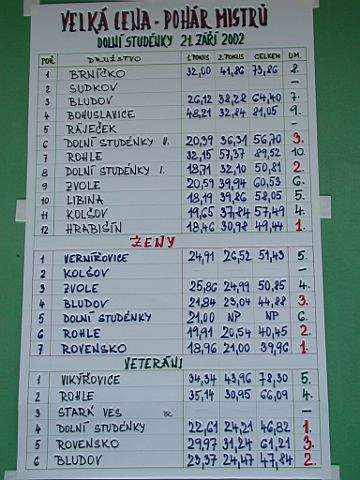 VELKÁ CENA - POHÁR MISTRŮ
DOLNÍ STUDÉNKY 21. ZÁŘÍ 2002
POŘ. DRUŽSTVO 1.POKUS 2.POKUS CELKEM UM.
1 BRNÍČKO 32,00 41,86 73,86 8.
2 SUDKOV –
3 BLUDOV 26,12 38,28 64,40 7.
4 BOHUSLAVICE 48,21 32,84 81,05 9.
5 RÁJEČEK –
6 DOLNÍ STUDÉNKY II. 20,39 36,31 56,70 3.
7 ROHLE 32,15 57,37 89,52 10.
8 DOLNÍ STUDÉNKY I. 18,71 32,10 50,81 2.
9 ZVOLE 20,59 39,94 60,53 6.
10 LIBINA 18,19 39,86 58,05 5.
11 KOLŠOV 19,65 37,84 57,49 4.
12 HRABIŠÍN 18,46 30,98 49,44 1.
ŽENY
1 VERNÍŘOVICE 24,91 26,52 51,43 5.
2 KOLŠOV –
3 ZVOLE 25,86 24,99 50,85 4.
4 BLUDOV 21,84 23,04 44,88 3.
5 DOLNÍ STUDÉNKY 21,00 NP NP 6.
6 ROHLE 19,91 20,54 40,45 2.
7 ROVENSKO 18,96 21,00 39,96 1.
VETERÁNI
1 VIKÝŘOVICE 34,34 43,96 78,30 5.
2 ROHLE 35,14 30,95 66,09 4.
3 STARÁ VES –
4 DOLNÍ STUDÉNKY 22,61 24,21 46,82 1.
5 ROVENSKO 29,97 31,24 61,21 3.
6 BLUDOV 23,37 24,47 47,84 2.